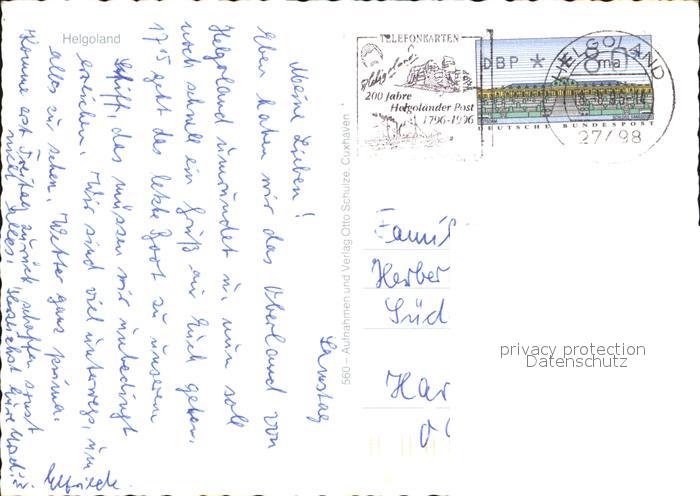 Helgoland
Samstag
Meine Lieben!
Eben haben wir das Oberland von
Helgoland umrundet u. nun soll
noch schnell ein Gruß an Euch gehen.
17.15 geht das letzte Boot zu unserem
Schiff, das müssen wir unbedingt
erreichen. Wir sind viel unterwegs, um
alles zu sehen. Wetter ganz prima.
Komme erst Freitag zurück, schaffen sonst
nicht alles. Herzlichst Eure
Elfriede.
560 – Aufnahmen und Verlag Otto Schulze, Cuxhaven
TELEFONKARTEN
Helgoland
200 Jahre
Helgoländer Post
1796-1996
DBP *
DEUTSCHE BUNDESPOST
HELGOLAND
27498
Famil
Herber
Süd
Har
privacy protection
Datenschutz